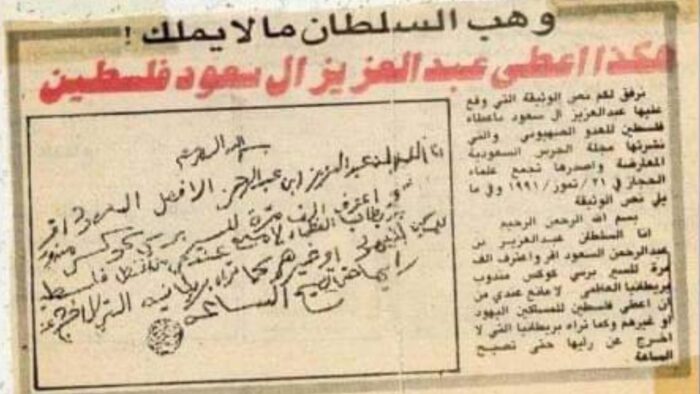 وهب السلطان مالا يملك !
هكذا اعطى عبدالعزيز ال سعود فلسطين
نرفق لكم نص الوثيقة التي وقع
عليها عبدالعزيز ال سعود باعطاء
فلسطين للعدو الصهيوني والتي
نشرتها مجلة الحرس السعودية
المعارضة واصدرها تجمع علماء
الحجاز في ٣١/تموز/١٩٩١ وفي ما
يلي نص الوثيقة
بسم الله الرحمن الرحيم
انا السلطان عبدالعزيز بن
عبدالرحمن السعود اقر واعترف الف
مرة للسير برسي كوكس مندوب
بريطانيا العظمى لا مانع عندي من
ان اعطي فلسطين للمساكين اليهود
او غيرهم وكما تراه بريطانيا التي لا
اخرج عن رايها حتى تصيح
الساعة
بسم الله الرحمن الرحيم
انا السلطان عبدالعزيز ابن عبدالرحمن السعود اقر
و اعترف الف مرة للسير برسي كوكس مندوب
بريطانيا العظمى لا مانع عندي فلسطين
او غيرهم كما تراه بريطانيا التي لا اخرج
رايها حتى تصيح الساعة